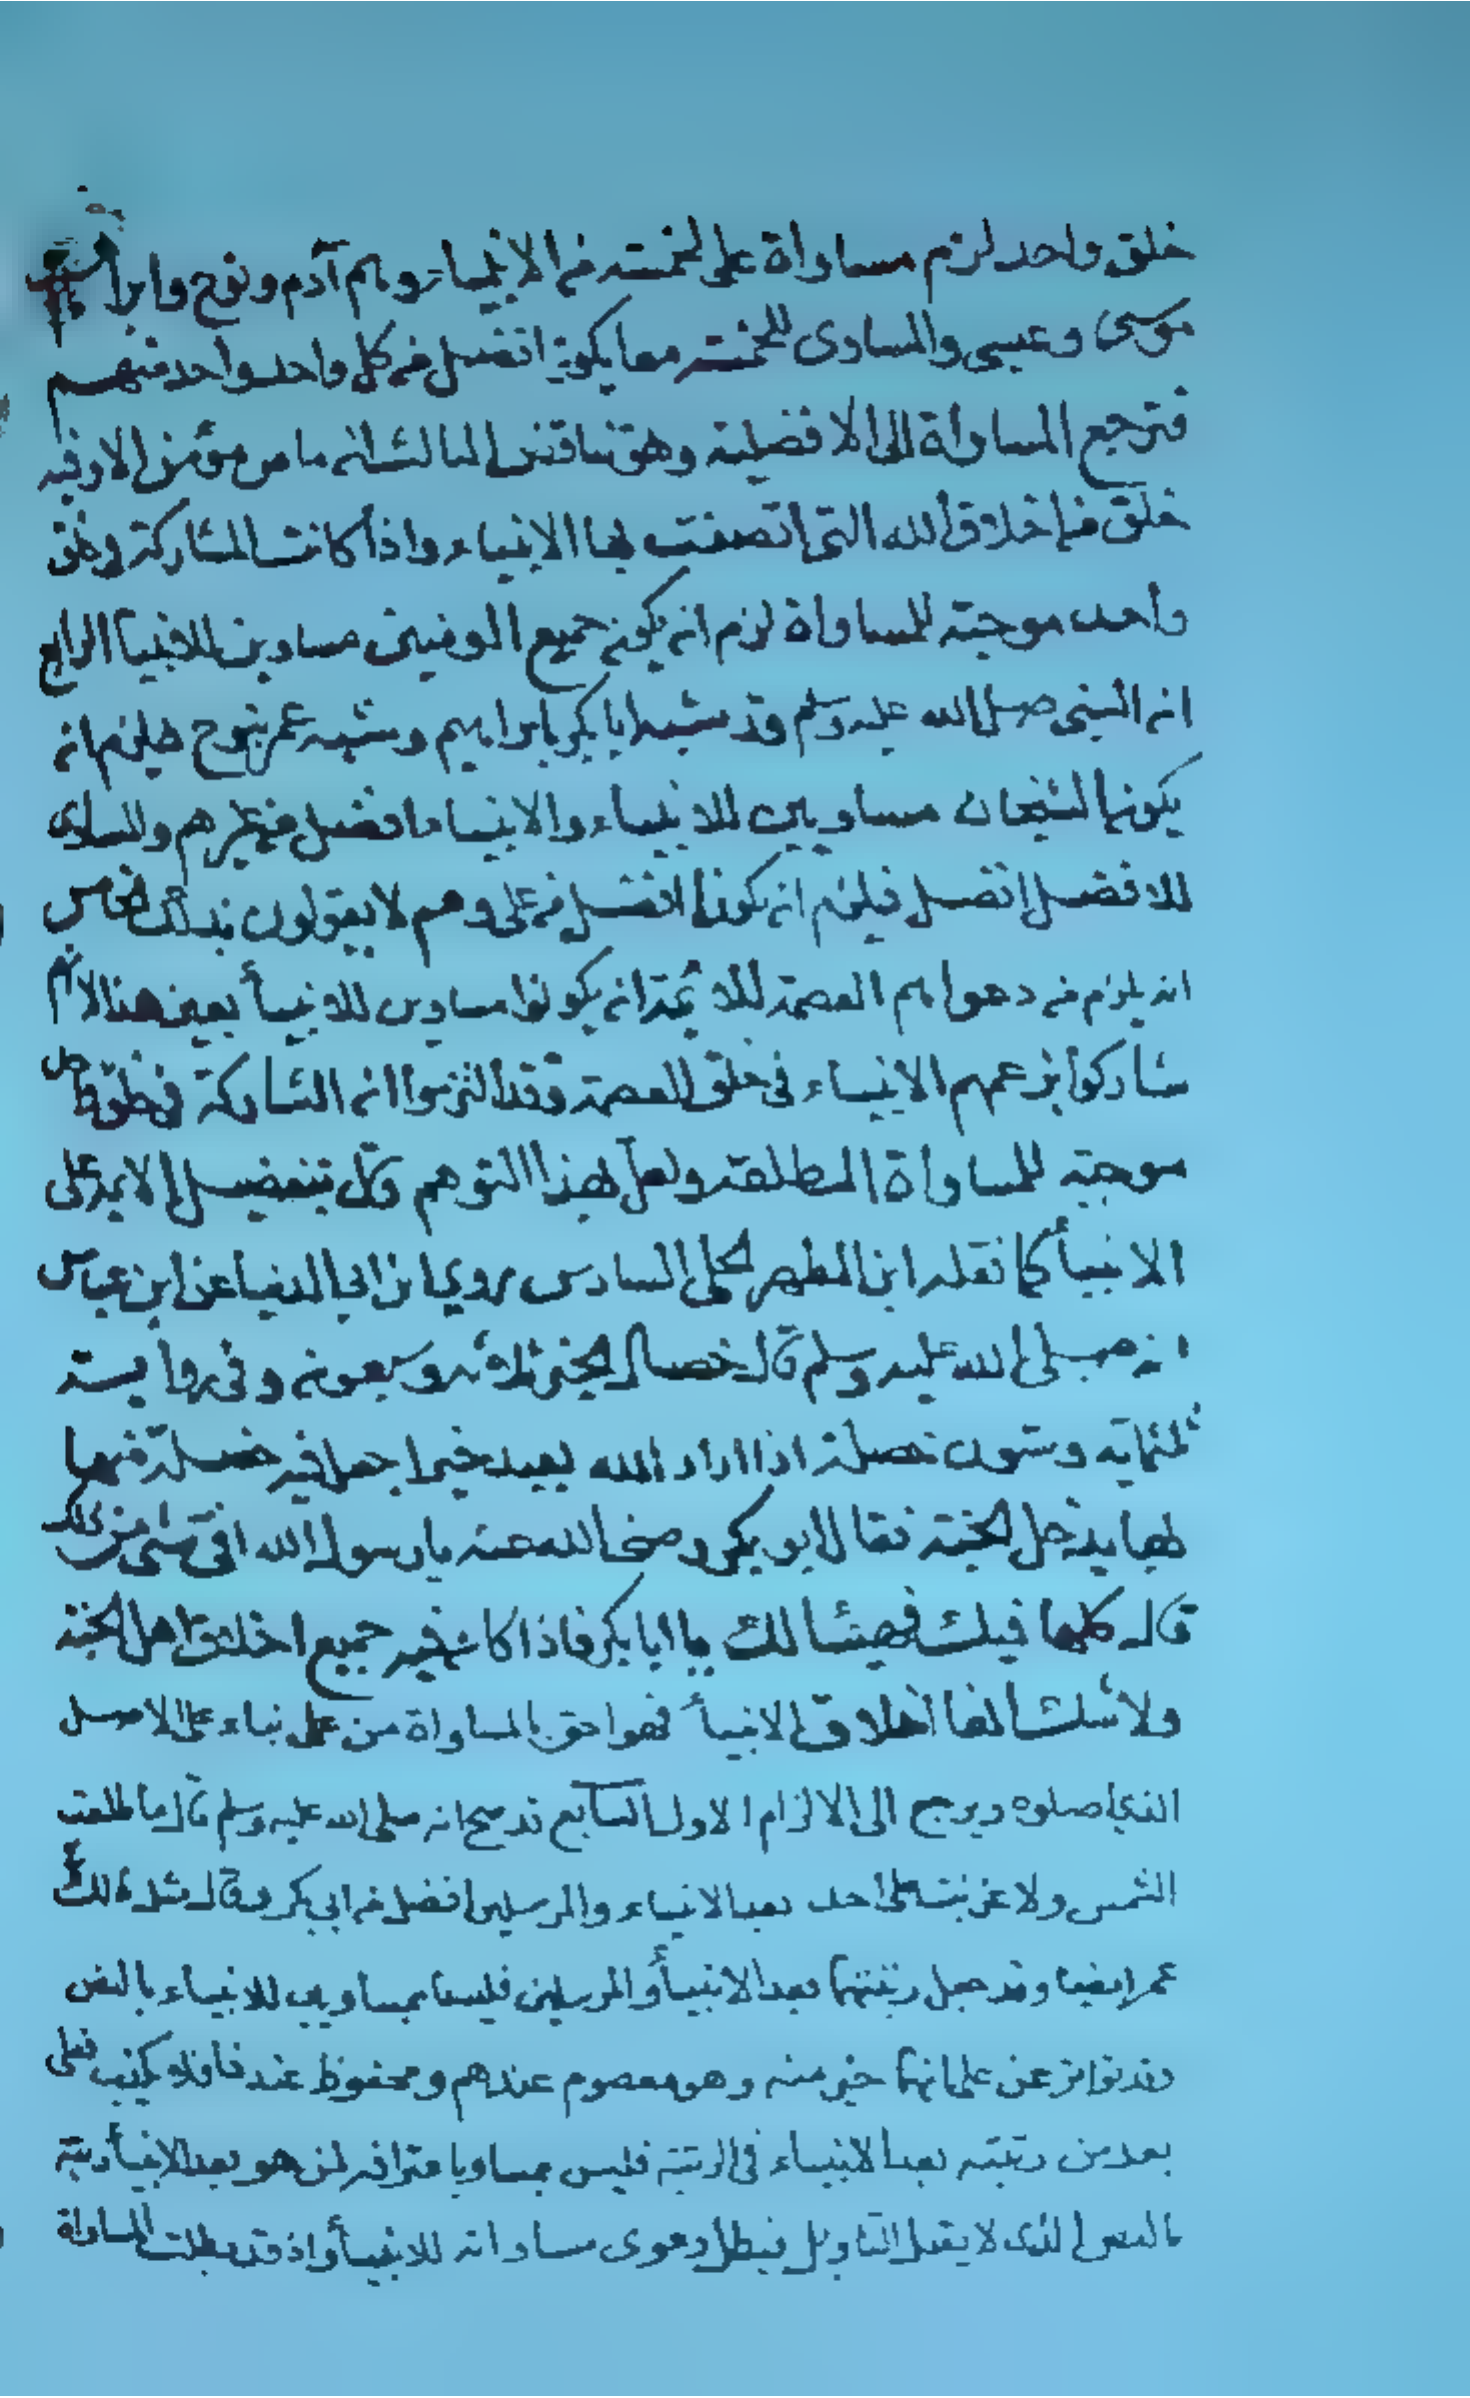 خلق واحد لزم مساواة على لخمسة من الانبياء وهم آدم ونوح وابراهيم
موسى وعيسى والمساوى للخمسة معا يكون افضل من كل واحد واحد منهم
فترجع المساواة الى الافضلية وهو تناقض الثالث انه ما من مؤمن الا وفيه
خلق من اخلاق الله التى اتصفت بها الانبياء واذا كانت المشاركة فى خلق
واحد موجبة للمساواة لزم ان يكون جميع المومنين مساوين للانبيا الرابع
ان النبى صلى الله عليه وسلم قد شبه ابا بكر بابراهيم وشبه عمر بنوح فلزم ان
يكون الشيخان مساويين للانبياء والانبياء افضل من غيرهم والمساوى
للافضل افضل فيلزم ان يكونا افضل من على وهم لا يقولون بذلك الخامس
انه يلزم من دعواهم العصمة للائمة ان يكونوا مساوين للانبيأ بعين هذا لانهم
شاركوا بزعمهم الانبياء فى خلق العصمة وقد التزموا ان المشاركة فى خلق واحد
موجبة للمساواة المطلقة ولعل لهذا التوهم قال بتفضيل الائمة على
الانبيأ كما نقله ابن المطهر الحلى السادس روى ابن ابى الدنيا عن ابن عباس
انه صلى الله عليه وسلم قال خصال الخير ثلاثة وسبعون وفى رواية
ثلثمائة وستون خصلة اذا اراد الله بعبد خيرا جعل فيه خصلة منها
بها يدخل الجنة فقال ابو بكر رضى الله عنه يا رسول الله افى شئ من ذلك
قال كلها فيك فهنيئا لك يا ابا بكر فاذا كان فيه جميع اخلاق اهل الجنة
ولا شك انها اخلاق الانبيأ فهو احق بالمساواة من على بناء على الاصل
الذى اصلوه ويرجع الى الالزام الاول السابع قد صح انه صلى الله عليه وسلم قال ما طلعت
الشمس ولا غربت على احد بعد الانبياء والمرسلين افضل من ابى بكر وقال مثل ذلك فى
عمر ايضا وقد جعل رتبتهما بعد الانبيأ والمرسلين فليسا بمساويين للانبياء بالنص
وقد تواتر عن على انهما خير منه وهو معصوم عندهم ومحفوظ عندنا فلا يكذب فعلى
بعد من رتبته بعد الانبياء فى الرتبة فليس بمساو باعترافه لمن هو بعد الانبيأ رتبة
بالنص الذى لا يقبل التاويل فبطل دعوى مساواته للانبيأ واذ قد بطلت المساواة